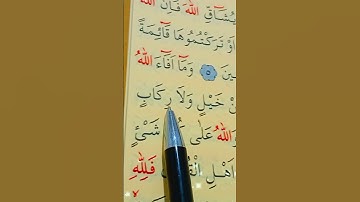 يُشَاقِّ اللّٰهَ فَاِنَّ اللّٰهَ
اَوْ تَرَكْتُمُوهَا قَٓائِمَةً
ينَ ٥ وَمَٓا اَفَٓاءَ اللّٰهُ
نْ خَيْلٍ وَلَا رِكَابٍ
وَاللّٰهُ عَلٰى شَيْءٍ
اَهْلِ الْقُ فَلِلّٰهِ
٧